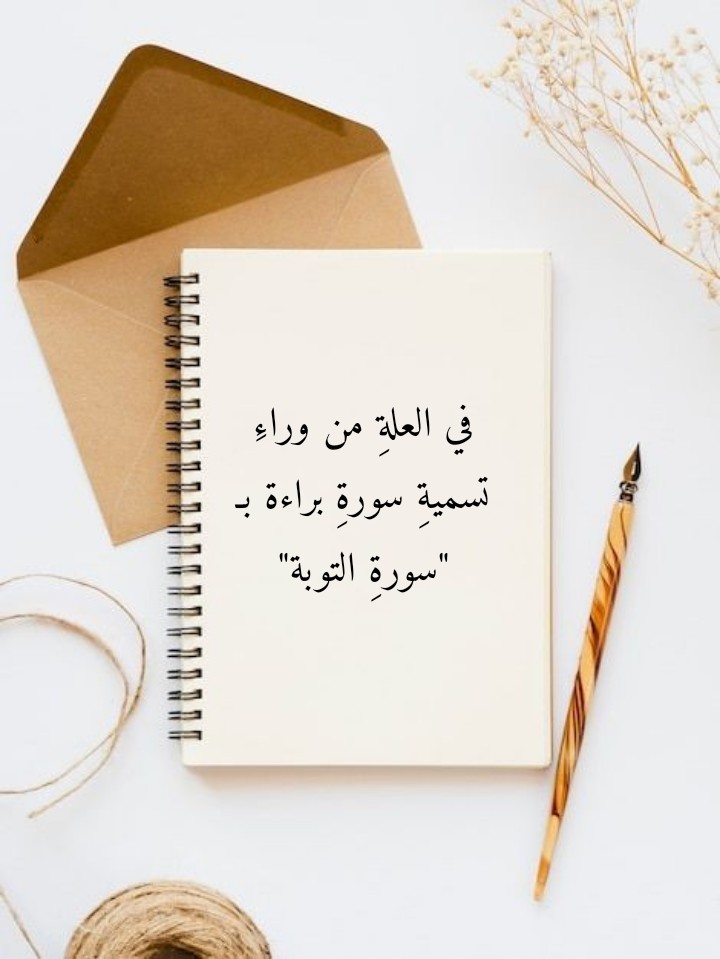 في العلةِ من وراءِ
تسميةِ سورةِ براءة بـ
"سورةِ التوبة"